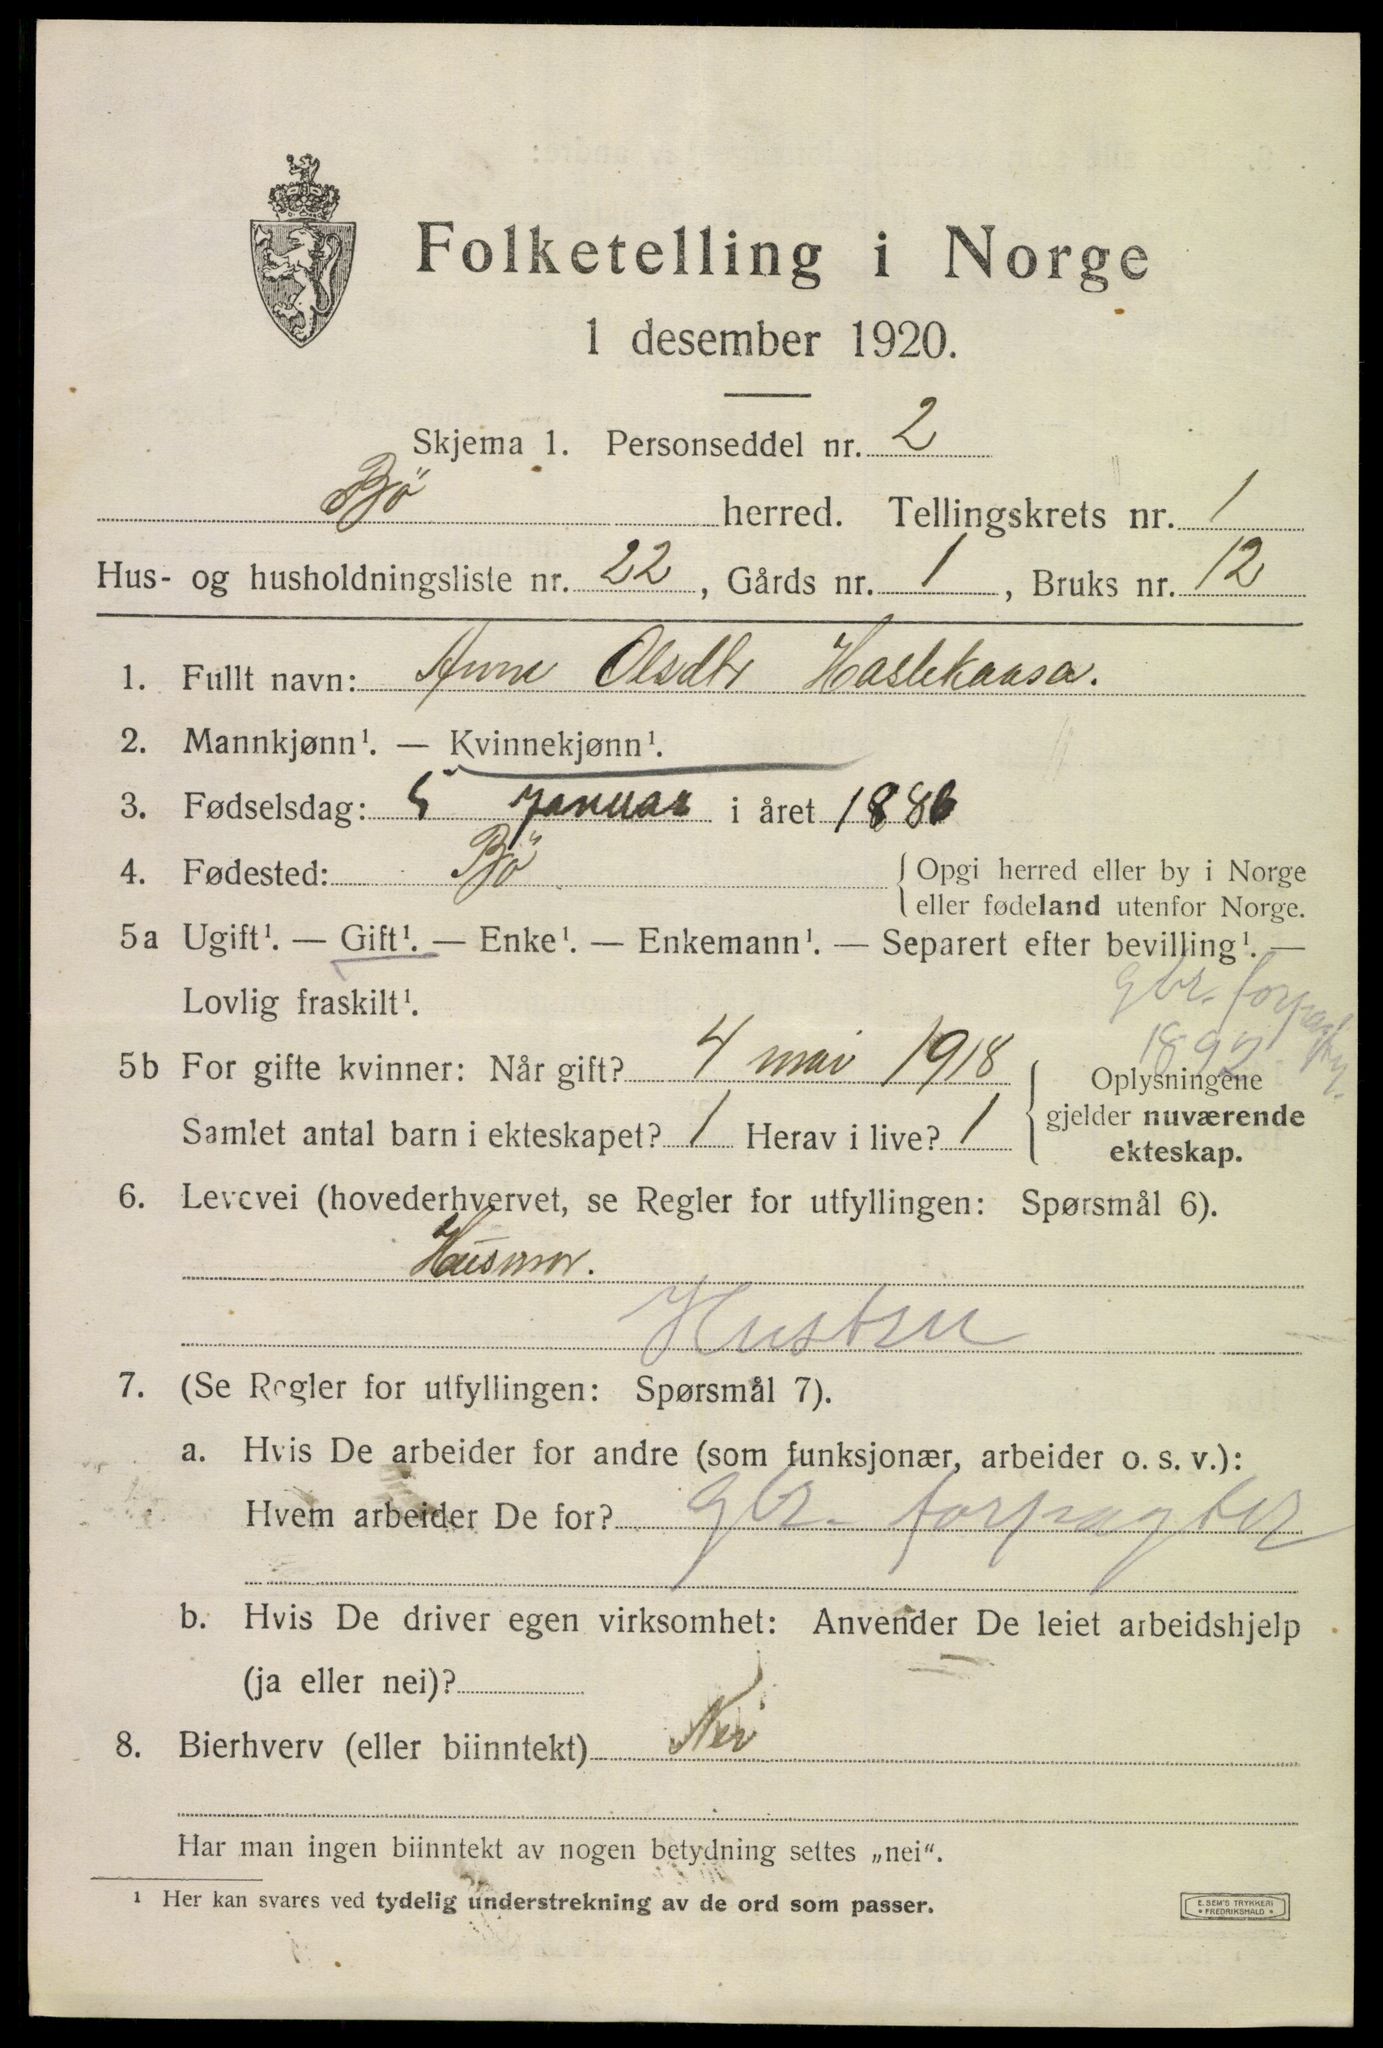 Folketelling i Norge
1 desember 1920.
Skjema 1. Personseddel nr. 2
Bjö herred. Tellingskrets nr. 1
Hus- og husholdningsliste nr. 22, Gårds nr. 1, Bruks nr. 12
1. Fullt navn: Anne Olsdtr Haslekaasa.
2. Mannkjønn¹. — Kvinnekjønn¹.
3. Fødselsdag: 5 januar i året 1886
4. Fødested: Bjö { Opgi herred eller by i Norge
eller fødeland utenfor Norge.
5a Ugift¹. — Gift¹. — Enke¹. — Enkemann¹. — Separert efter bevilling¹. —
Lovlig fraskilt¹.
gbr. forpagter
1892
5b For gifte kvinner: Når gift? 4 mai 1918
Samlet antal barn i ekteskapet? 1 Herav i live? 1
{ Oplysningene
gjelder nuværende
ekteskap.
6. Levevei (hovederhvervet, se Regler for utfyllingen: Spørsmål 6).
Husmor.
Hustru
7. (Se Regler for utfyllingen: Spørsmål 7).
a. Hvis De arbeider for andre (som funksjonær, arbeider o. s. v.):
Hvem arbeider De for? gbr. forpagter
b. Hvis De driver egen virksomhet: Anvender De leiet arbeidshjelp
(ja eller nei)?
8. Bierhverv (eller biinntekt) Nei
Har man ingen biinntekt av nogen betydning settes „nei“.
¹ Her kan svares ved tydelig understrekning av de ord som passer.
E. SEM'S TRYKKERI
• FREDRIKSHALD •